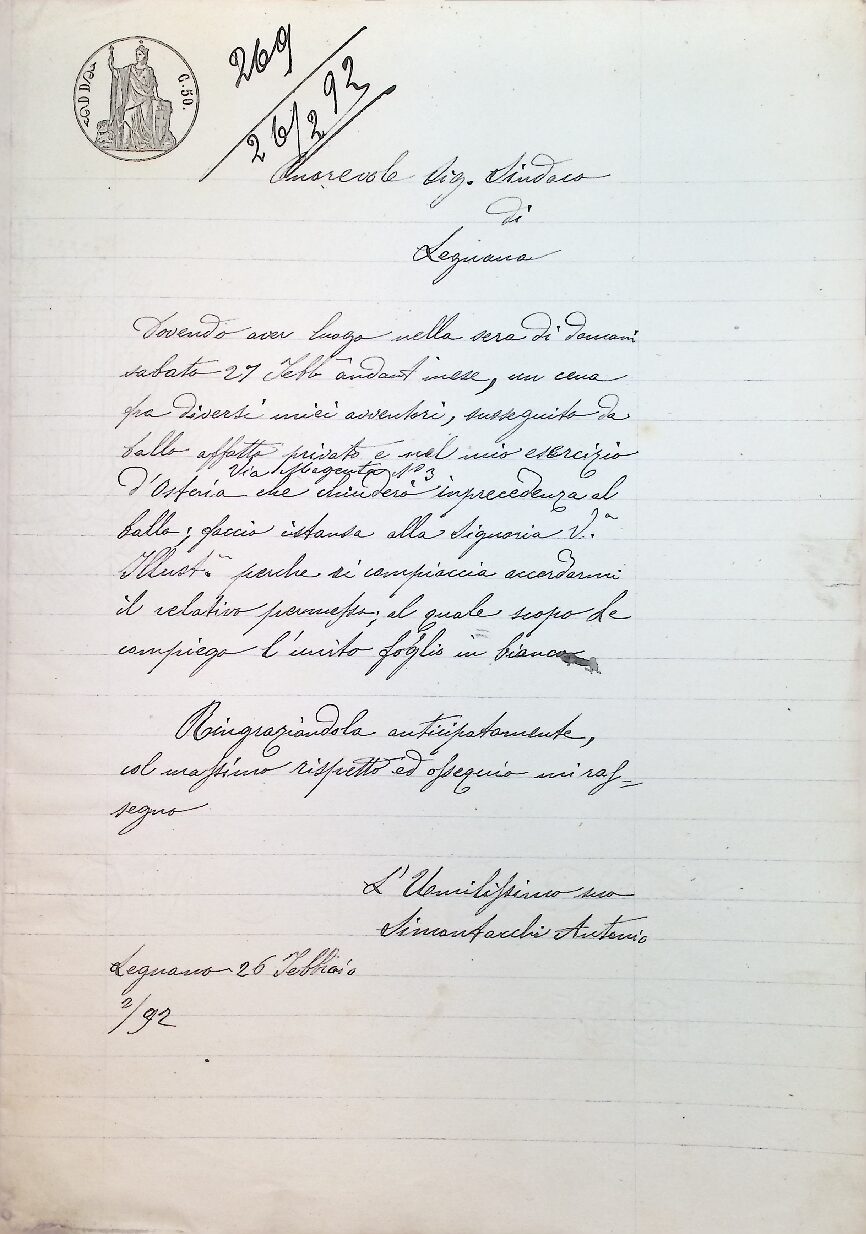 C. 50.
269
26/2 92
Onorevole Sig. Sindaco
di
Legnano
Dovendo aver luogo nella sera di domani
sabato 27 Febb andant mese, un cena
fra diversi miei avventori, susseguito da
ballo affatto privato e nel mio esercizio
Via Magenta N° 3
d'Osteria che chiuderò inprecedenza al
ballo; faccio istanza alla Signoria V.a
Illust.a perche si compiaccia accordarmi
il relativo permesso; al quale scopo le
compiego l'unito foglio in bianco
Ringraziandola anticipatamente,
col massimo rispetto ed ossequio mi ras=
segno
L'Umilissimo suo
Simontacchi Antonio
Legnano 26 Febbraio
2/92